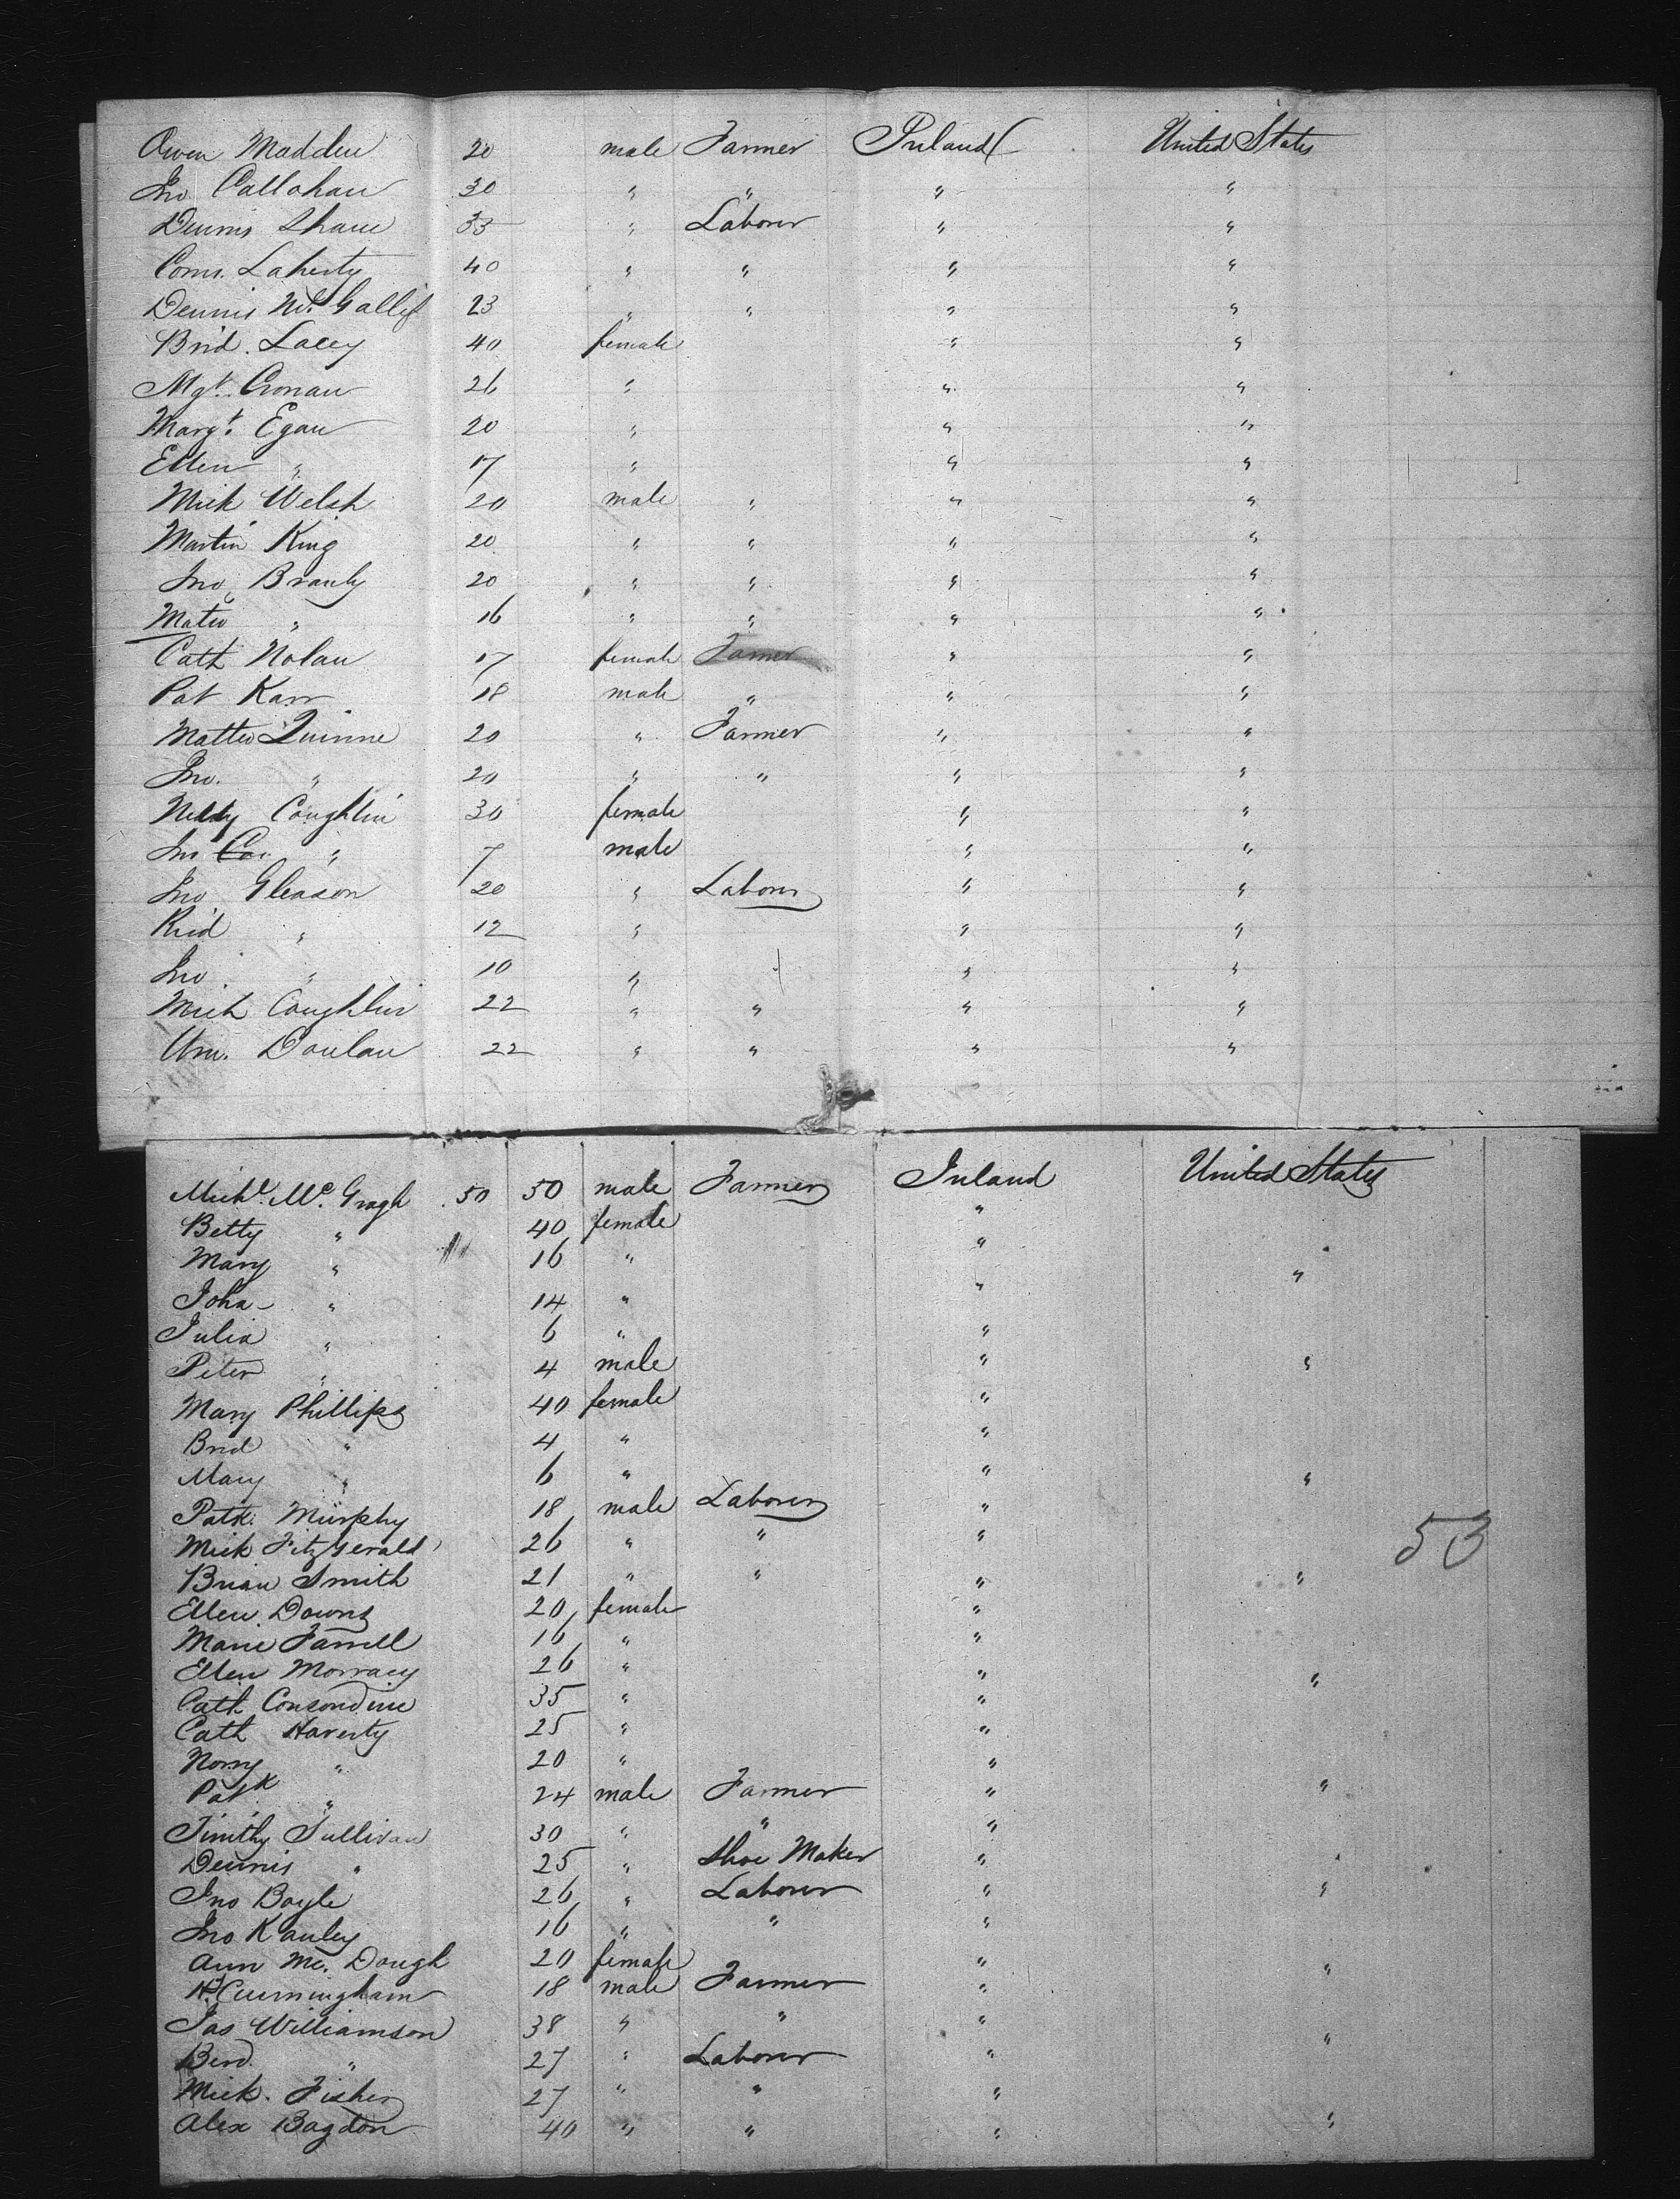 Owen Madden 20 male Farmer Ireland United States
Jno Callahan 30 " " " "
Dennis Shaue 33 " Laborer " "
Corns. Laherty 40 " " " "
Dennis Mc 23 " " " "
Brid. Lacey 40 female " "
Mgt. Cronan 26 " " "
Margt. Egan 20 " " "
Ellen " 17 " " "
Mick Welsh 20 male " " "
Martin King 20 " " " "
Jno Branly 20 " " " "
Matw " 16 " " " "
Cath Nolan 17 female Farmer " "
Pat Karr 18 male " " "
Mattw Quinne 20 " Farmer " "
Jno. " 20 " " " "
Nelly Coughlin 30 female " "
Jno Co " 7 male " "
Jno Gleason 20 " Laborer " "
Rid " 12 " " "
Jno " 10 " " "
Mich Coughlin 22 " " " "
Wm. Donlan 22 " " " "
Michl. Mc. Gragh 50 50 male Farmer Ireland United States
Betty " 40 female "
Mary " 16 " "
Joha- " 14 " " "
Julia " 6 " "
Peter " 4 male " "
Mary Phillips 40 female "
Brid " 4 " "
Mary " 6 " " "
Patk. Murphy 18 male Laborer "
Mick FitzGerald 26 " " "
53
Brian Smith 21 " " " "
Ellen Downs 20 female "
Marie Farrell 16 " "
Ellen Morracy 26 " " "
Cath Consondine 35 " "
Cath Haverty 25 " "
Nory " 20 " "
Patk " 24 male Farmer " "
Timithy Sullivan 30 " " "
Dennis " 25 " Shoe Maker " "
Jno Boyle 26 " Laborer " "
Jno Kauley 16 " " "
Ann Mc. Dough 20 female " "
Cunningham 18 male Farmer "
Jas Williamson 38 " " " "
Bend. " 27 " Laborer "
Mick. Fisher 27 " " "
Alex Bagdon 40 " " " "